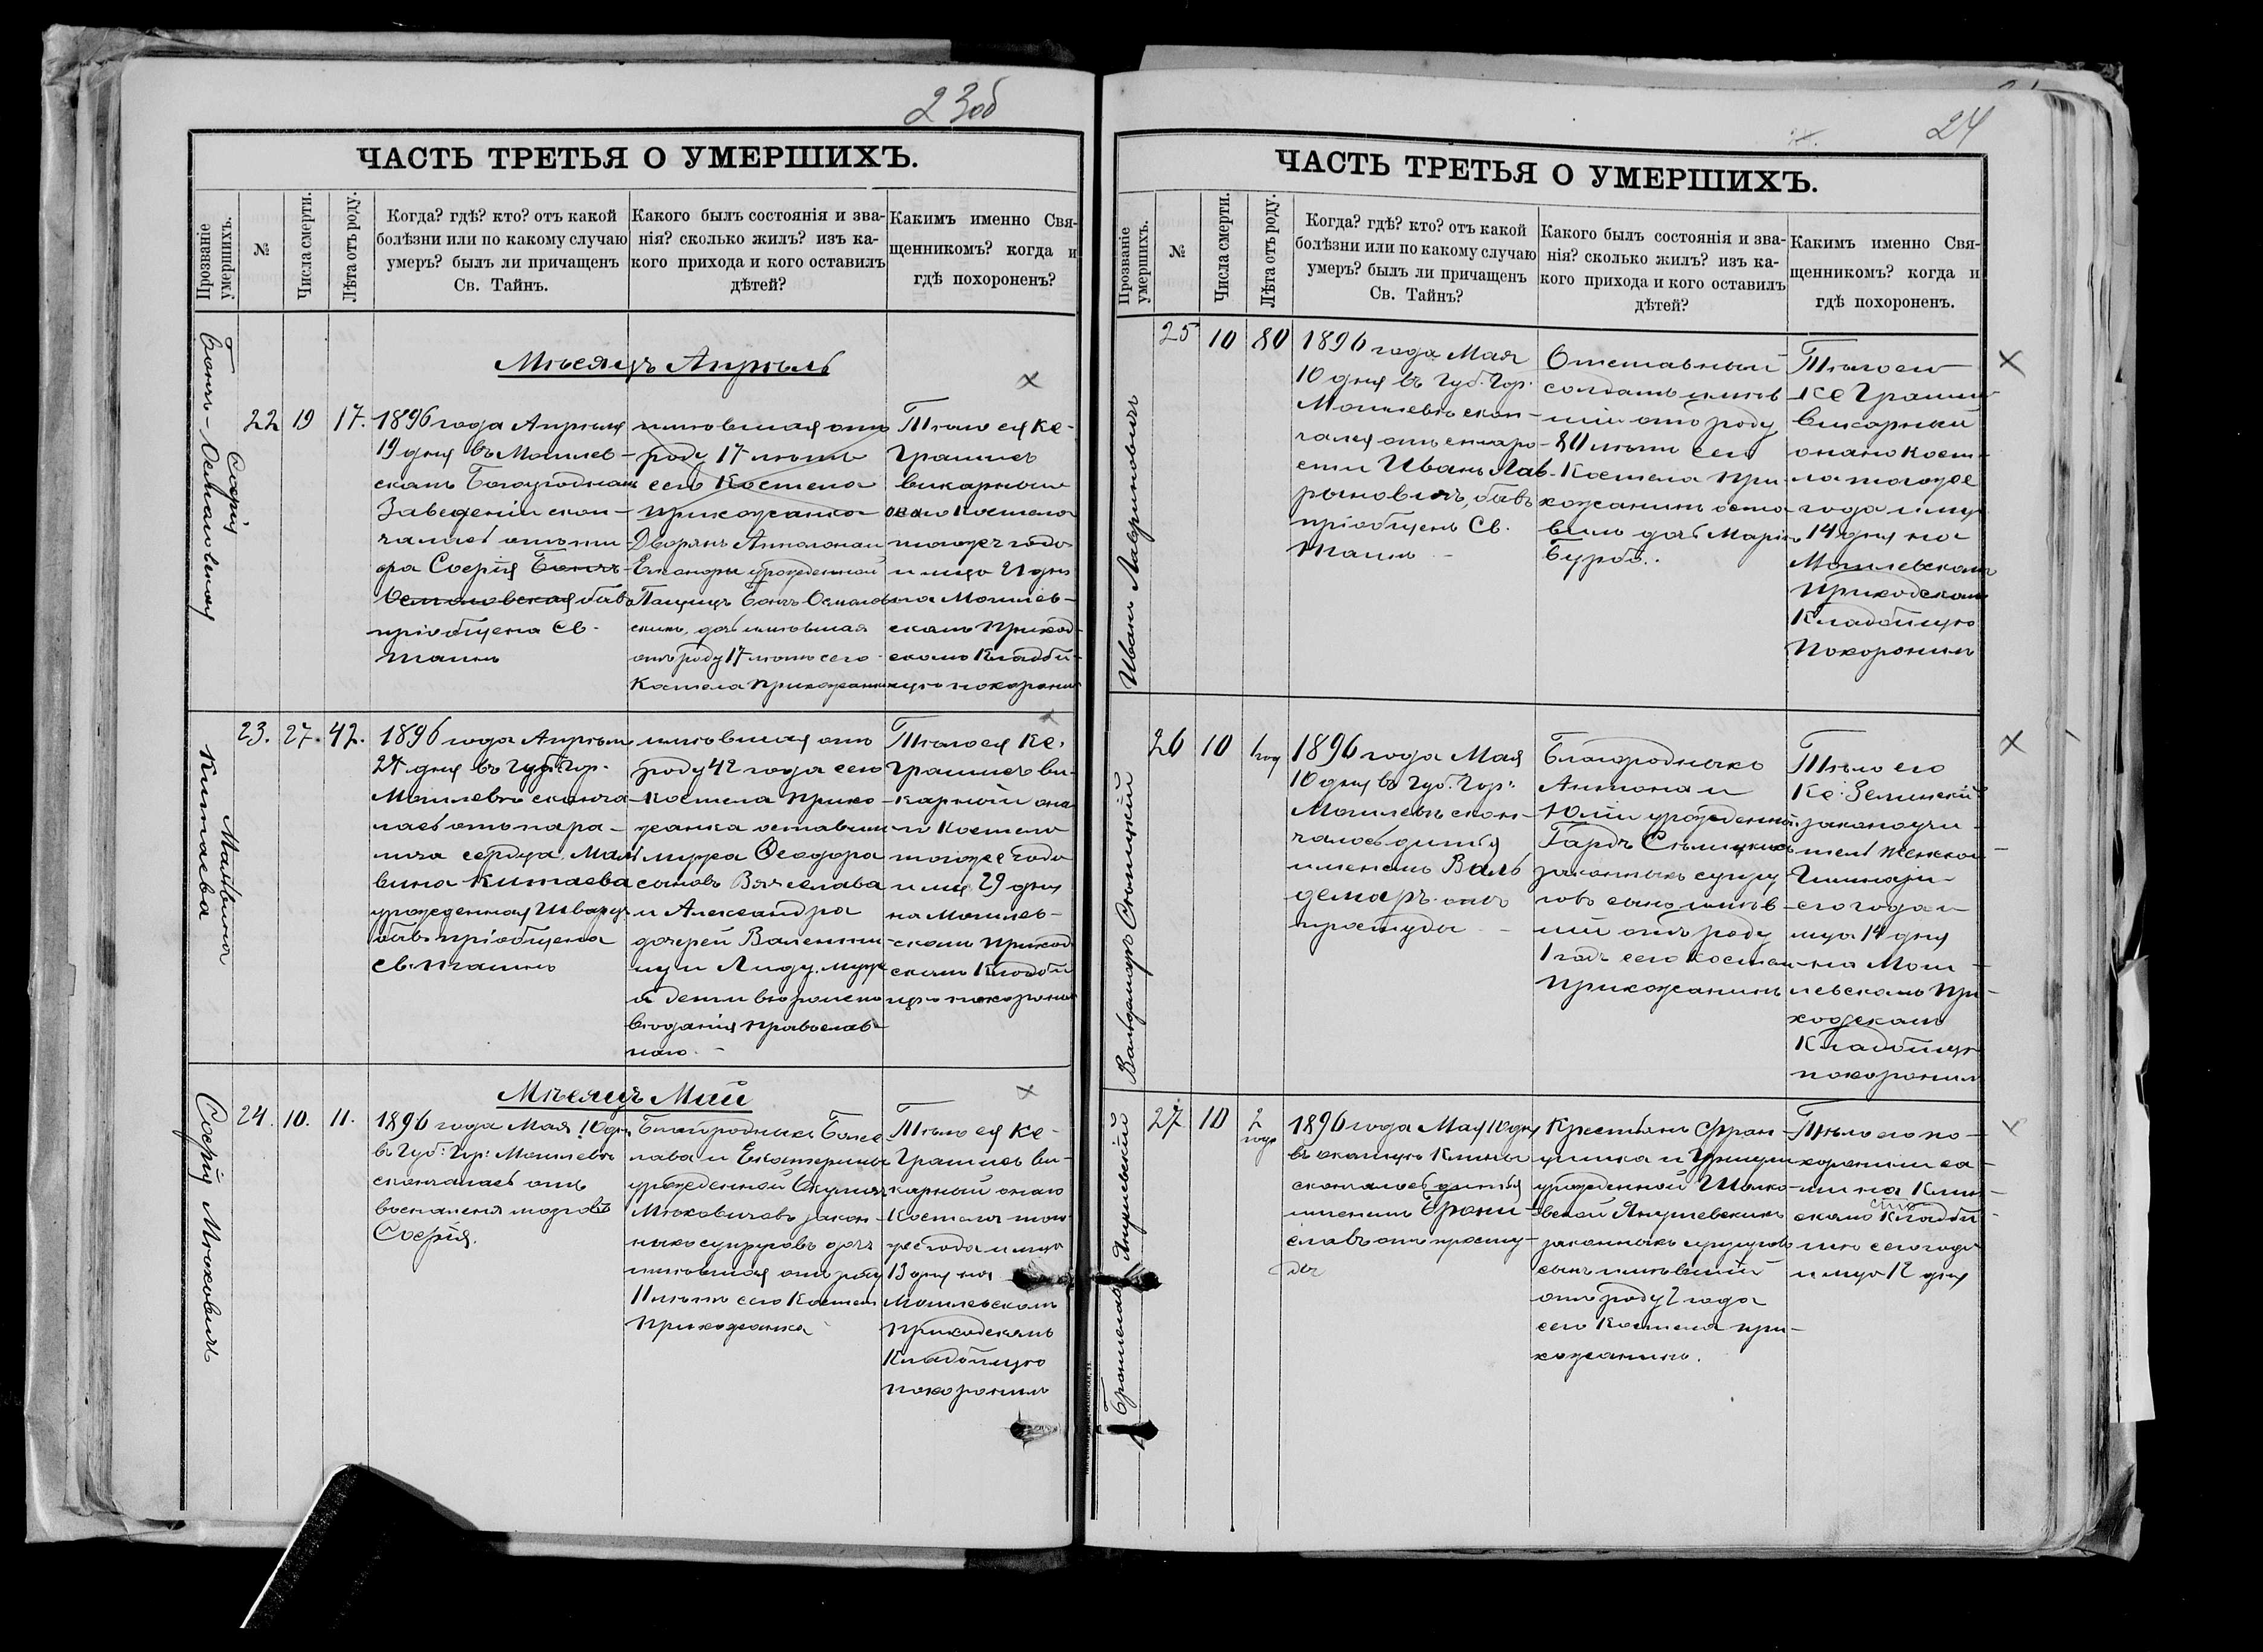 23об
ЧАСТЬ ТРЕТЬЯ О УМЕРШИХЪ.
Прозваніе умершихъ.
№
Числа смерти.
Лѣта отъ роду.
Когда? гдѣ? кто? отъ какой
болѣзни или по какому случаю
умеръ? былъ ли причащенъ
Св. Тайнъ.
Какого былъ состоянія и зва-
нія? сколько жилъ? изъ ка-
кого прихода и кого оставилъ
дѣтей?
Какимъ именно Свя-
щенникомъ? когда и
гдѣ похороненъ?
Мѣсяцъ Апрѣль
Софія
22 19 17.
1896 года Апрѣля
19 дня въ Могилев-
скомъ Богоугодномъ
Заведеніи скон-
чалась отъ ти
фа Софія Бончъ-
Осмоловская бывъ
пріобщена Св.
Таинъ
имѣвшая отъ
роду 17 лѣтъ
сего Костела
прихожанка
Дворянъ Аполлонаи
Елеоноры урожденной
Бончъ Осмолов
скихъ, дочь имѣвшая
отъ роду 17 лѣтъ сего
Костела прихожанка
Тѣло ея Кс.
Грашисъ
викарный
онаго Костела
тогоже года
и мца 21 дня
на Могилев-
скомъ приход-
скомъ Кладби-
щѣ похоронилъ
Мальвина
Китаева
23. 27. 42.
1896 года Апрѣля
27 дня въ Губ. Гор.
Могилевѣ сконча-
лась отъ пара-
лича сердца Маль
вина Китаева
урожденная Шварцъ
бывъ пріобщена
Св. Таинъ
имѣвшая отъ
роду 42 года сего
Костела прихо-
жанка оставила
мужа Ѳеодора
сыновъ Вячеслава
и Александра
дочерей Валенти
ну и Лиду. мужъ
и дети вѣроиспо
вѣданія православ-
наго.
Тѣло ея Кс.
Грашисъ ви-
карный она
го Костела
тогоже года
и мца 29 дня
на Могилев-
скомъ приход
скомъ Кладби
щѣ похоронилъ
Мѣсяцъ Май
Софія Мюковичъ
24. 10. 11.
1896 года Мая 10 дня
въ Губ: Гор: Могилевѣ
скончалась отъ
воспаленія мозговъ
Софія.
Благородныхъ Боле
лава и Екатерины
урожденной
Мюковичевъ закон-
ныхъ супруговъ дочь
имѣвшая отъ роду
11 лѣтъ сего Костела
прихожанка
Тѣло ея Кс.
Грашисъ ви-
карный онаго
Костела того
же года и мца
13 дня на
Могилевскомъ
приходскомъ
Кладбищѣ
похоронилъ
24
ЧАСТЬ ТРЕТЬЯ О УМЕРШИХЪ.
Прозваніе умершихъ.
№
Числа смерти.
Лѣта отъ роду.
Когда? гдѣ? кто? отъ какой
болѣзни или по какому случаю
умеръ? былъ ли причащенъ
Св. Тайнъ?
Какого былъ состоянія и зва-
нія? сколько жилъ? изъ ка-
кого прихода и кого оставилъ
дѣтей?
Какимъ именно Свя-
щенникомъ? когда и
гдѣ похороненъ.
Иванъ Лавриновичъ
25 10 80
1896 года Мая
10 дня въ Губ. Гор.
Могилевѣ скон-
чался отъ старо-
сти Иванъ Лав-
рыновичъ, бывъ
пріобщенъ Св.
Таинъ
Отставный
солдатъ имѣв
шій отъ роду
80 лѣтъ сего
Костела при-
хожанинъ оста-
вилъ дочь Марію
Бурбо.
Тѣло его
Кс Грашисъ
викарный
онаго Косте-
ла тогоже
года и мца
14 дня на
Могилевскомъ
Приходскомъ
Кладбищѣ
Похоронилъ
26 10 1 год
1896 года Мая
10 дня въ Губ. Гор:
Могилевѣ скон-
чалось дитя
именемъ Валь
демаръ отъ
простуды
Благородныхъ
Антона и
Юліи урожденной
законныхъ супру
говъ сынъ имѣв
шій отъ роду
1 годъ сего Костела
прихожанинъ
Тѣло его
Кс. Зелинскій
законоучи-
тель женской
Гимназіи
сего года и
мца 14 дня
на Моги-
левскомъ При-
ходскомъ
Кладбищѣ
похоронилъ
Брониславъ Янушевскій
27 10 2 года
1896 года Мая 10 дня
въ околицѣ Клины
скончалось дитя
именемъ Брони-
славъ отъ просту-
ды
Крестьянъ Фран-
цишка и
урожденной
Янушевскихъ
законныхъ супруговъ
сынъ имѣвшій
отъ роду 2 года
сего Костела при-
хожанинъ.
Тѣло его по-
хоронили са-
ми на Клин-
скомъ Кладби
щѣ сего года
и мца 12 дня